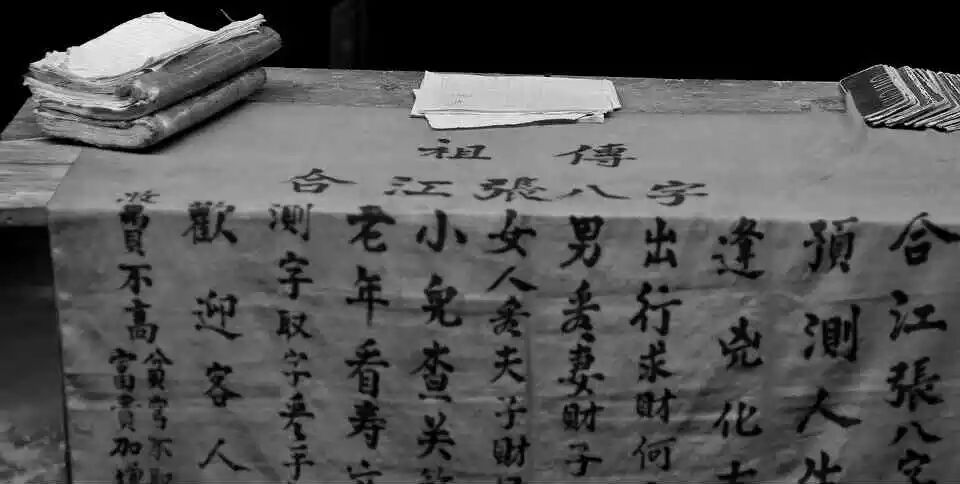 祖傳
合江張八字
合江張八字
預測人生
逢兇化
出行求財何
男看妻財子
女人看夫子財
小兒查关
老年看寿
測字取字
歡迎客人
收費不高
貧窮不取
富貴加增